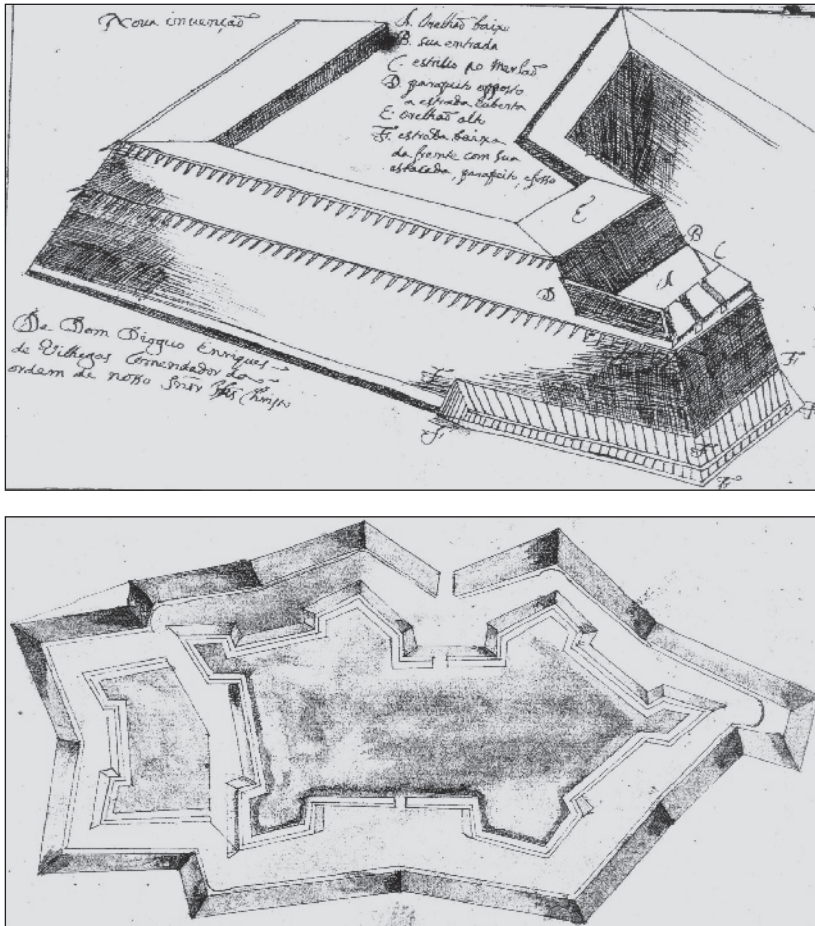 Noua inuenção
A. Orelhaõ baixo
B. sua entrada
C. estribo po Merlaõ
D. parapeito opposto
a estrada cuberta
E. orelhaõ alto
F. estrada baixa
da frente com sua
estacada, parapeito, e fosso
E
B
C
A
D
De Dom Dioguo Enriques
de Vilhegas Comendador da
ordem de nosso Snõr Jhs Christo
F
F
F
F
F
F